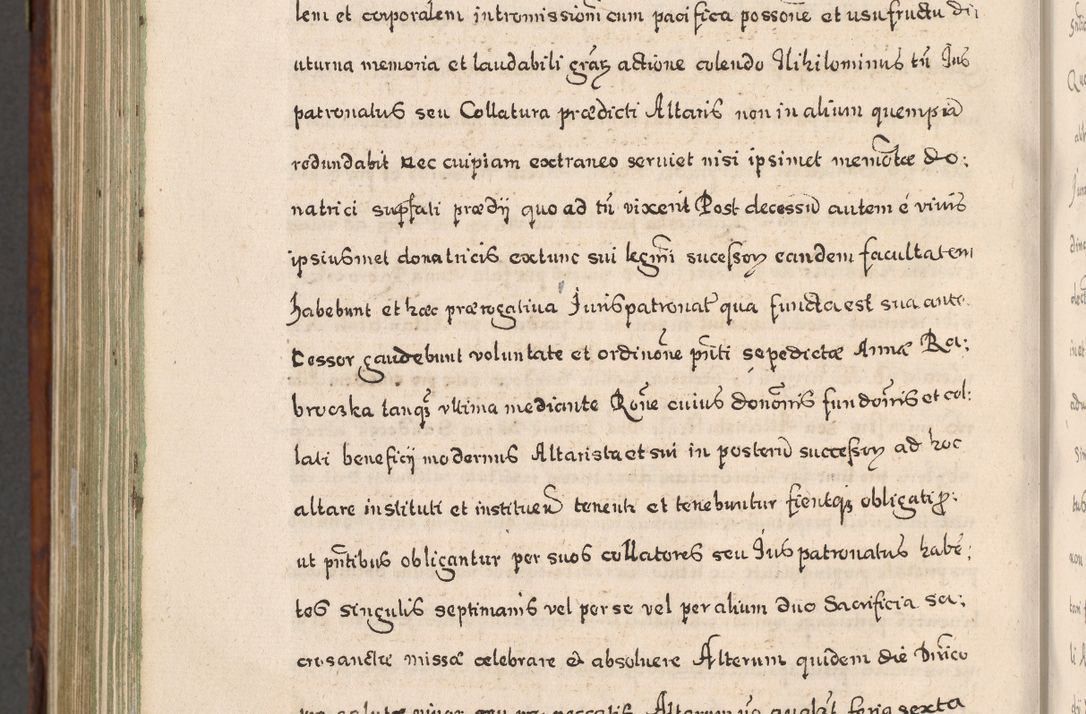 lem et corporalem intromissioni cum pacifica possone et usufructu diu
uturna memoria et laudabili gratz actione colendo Nihilominus tn Ius
patronatus seu Collatura prædicti Altaris non in alium quempia
redundabit nec cuipiam extraneo seruiet nisi ipsimet memotæ do:
natrici supfati prædij quo ad tn vixerit Post decessu autem é viuis
ipsiusmet donatricis extunc sui legmi sucessorz eandem facultatem
habebunt et hæc prærogatiua Iurispatronat qua functa est sua ante
Cessor gaudebunt voluntate et ordinone pnti sepedictæ Annæ Ra:
broczka tanqz vltima mediante Rone cuius donoinis fundoinis et col:
lati beneficij modernus Altarista et sui in posteru successorz ad hoc
altare instituti et instituen tenent et tenebuntur fientqz obligati p:
ut pntibus obligantur per suos collatores seu Ius patronatus habe:
tes singulis septimanis vel per se vel per alium duo Sacrificia sa:
crosanctæ missæ celebrare & absoluere Alterum quidem die Dnico